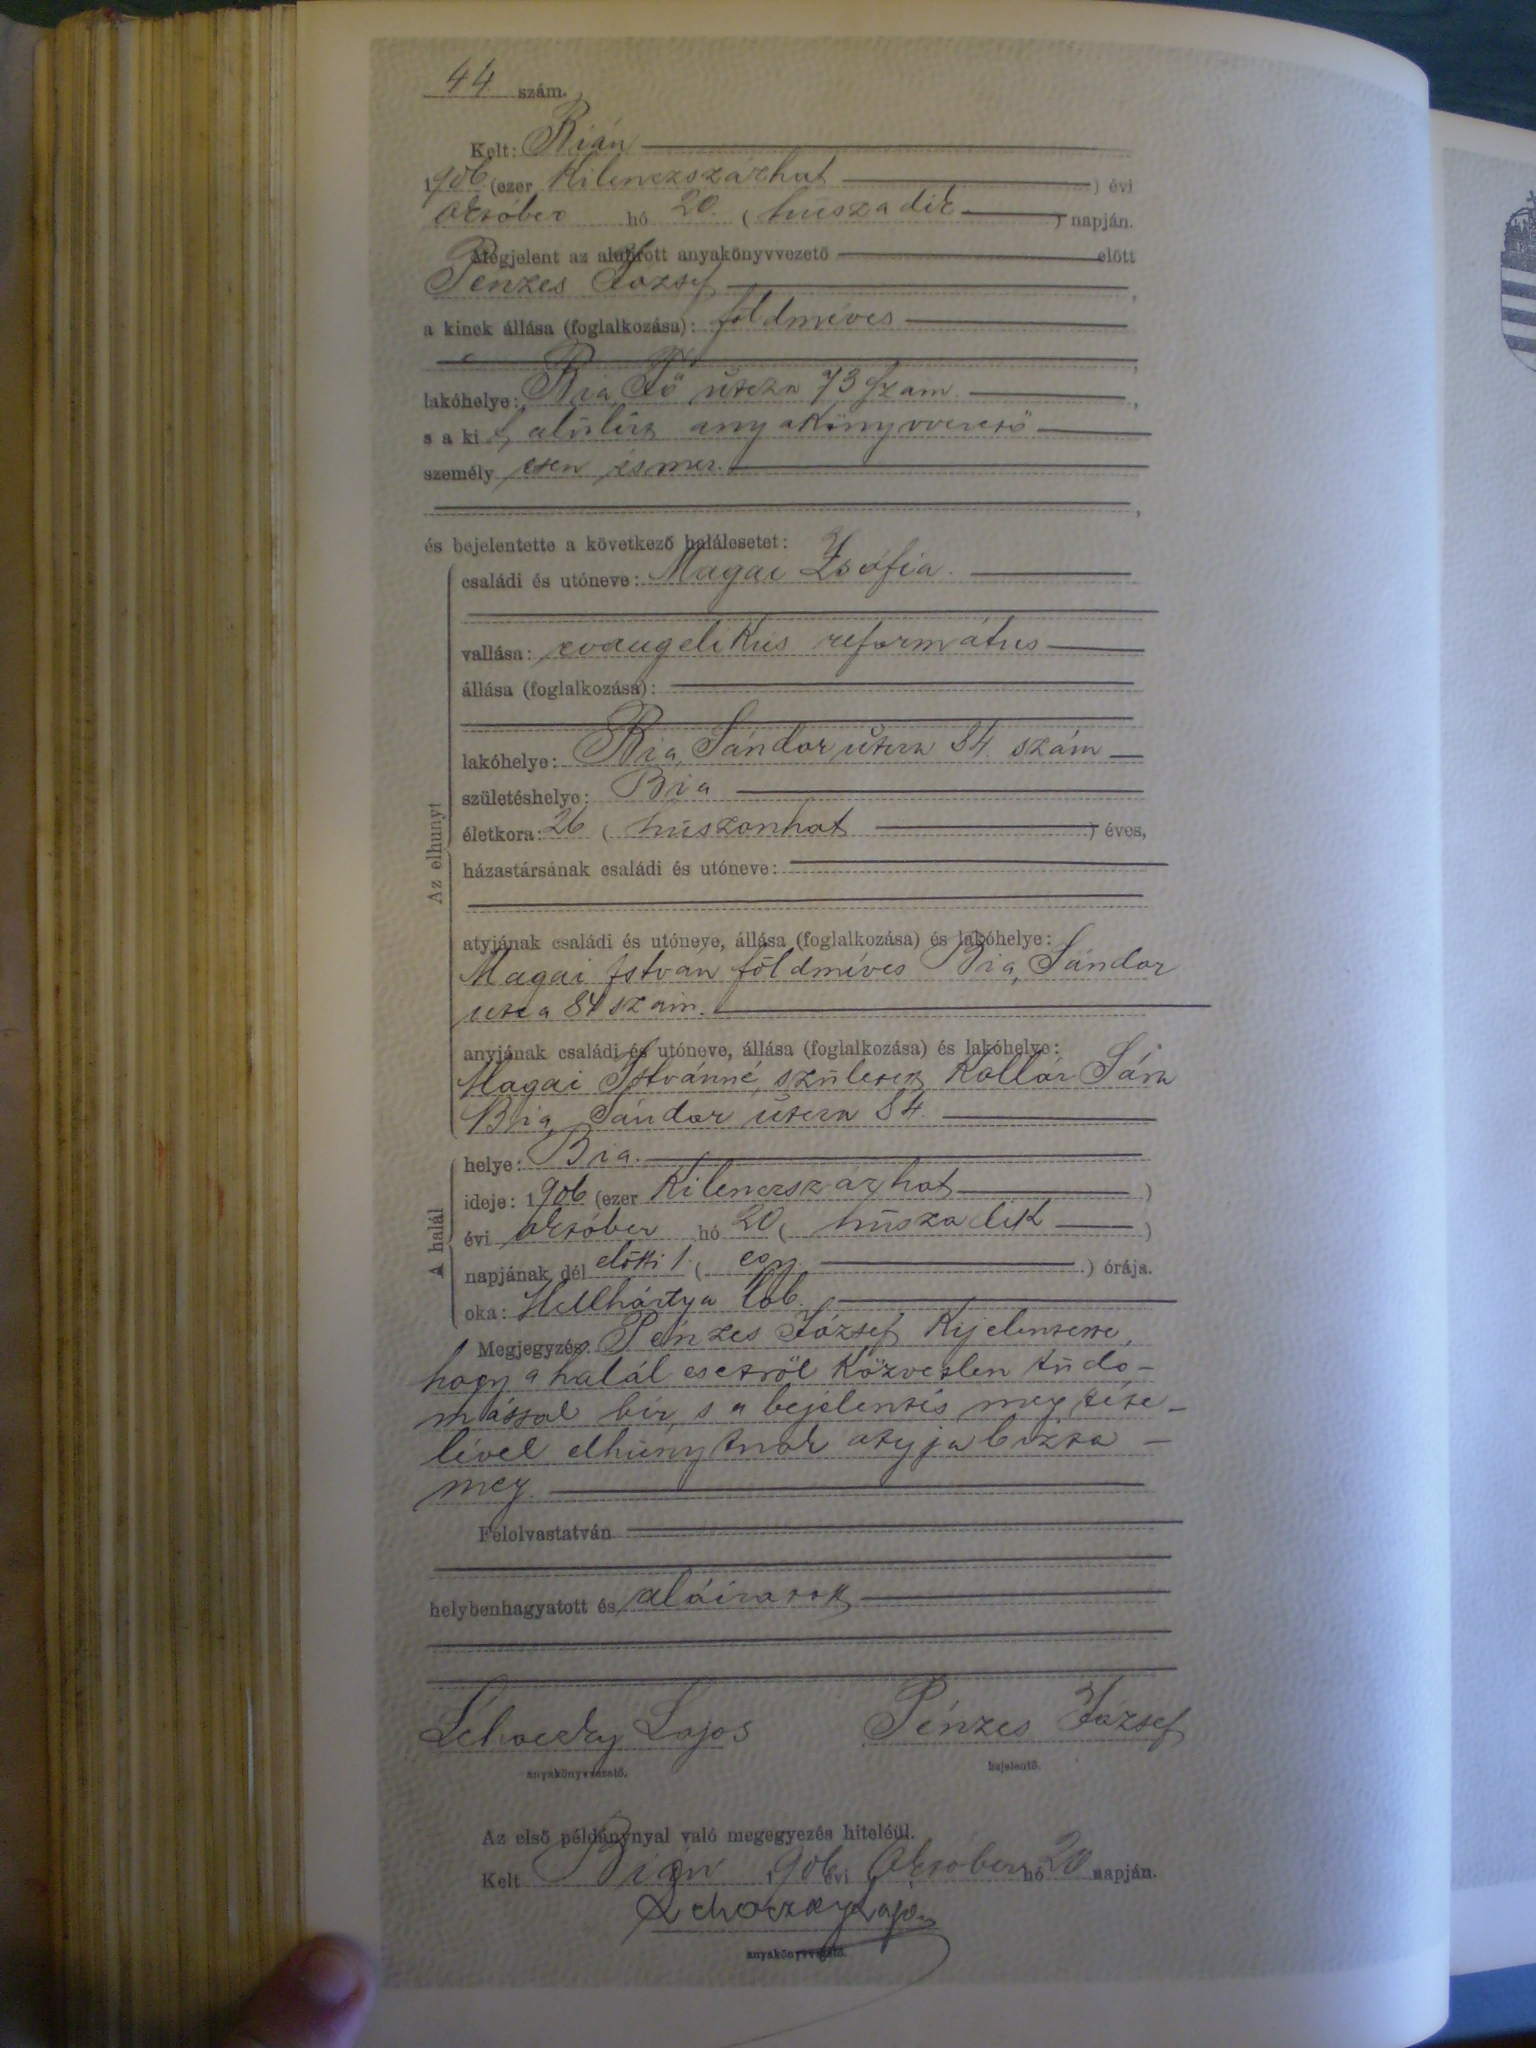 44 szám.
Kelt: Bián
1906 (ezer kilenczszázhat) évi
október hó 20. (húszadik) napján.
Megjelent az alulírott anyakönyvvezető előtt
Pénzes József,
a kinek állása (foglalkozása): földmíves
lakóhelye: Bia, Fő útcza 73 szám,
s a kit alúlírt anyakönyvvezető
személyesen ismer.
és bejelentette a következő halálesetet:
családi és utóneve: Magai Zsófia.
vallása: evangelikus református
állása (foglalkozása):
lakóhelye: Bia, Sándor útcza 84. szám
születéshelye: Bia
életkora: 26 (húszonhat) éves,
házastársának családi és utóneve:
Az elhunyt
atyjának családi és utóneve, állása (foglalkozása) és lakóhelye:
Magai István földmíves Bia, Sándor
utca 84 szám.
anyjának családi és utóneve, állása (foglalkozása) és lakóhelye:
Magai Istvánné, született Kollár Sára
Bia, Sándor útcza 84.
helye: Bia.
ideje: 1906 (ezer kilenczszázhat)
évi október hó 20 (húszadik)
A halál
napjának dél előtti 1. (egy) órája.
oka: Mellhártya lob.
Megjegyzés: Pénzes József kijelentette,
hogy a halál esetről közvetlen túdo-
mással bír, s a bejelentés megtéte-
lével elhúnytnak atyja bízta
meg.
Felolvastatván
helybenhagyatott és aláiratott
Lehoczky Lajos Pénzes József
anyakönyvvezető. bejelentő.
Az első példánynyal való megegyezés hiteléül.
Kelt Bián 1906 évi Október hó 20 napján.
Lehoczky Lajos
anyakönyvvezető.